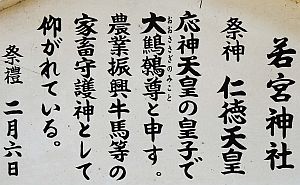 若宮神社
祭神 仁徳天皇
応神天皇の皇子で
おおささぎのみこと
大鷦鷯尊と申す。
農業振興牛馬等の
家畜守護神として
仰がれている。
祭禮 二月六日